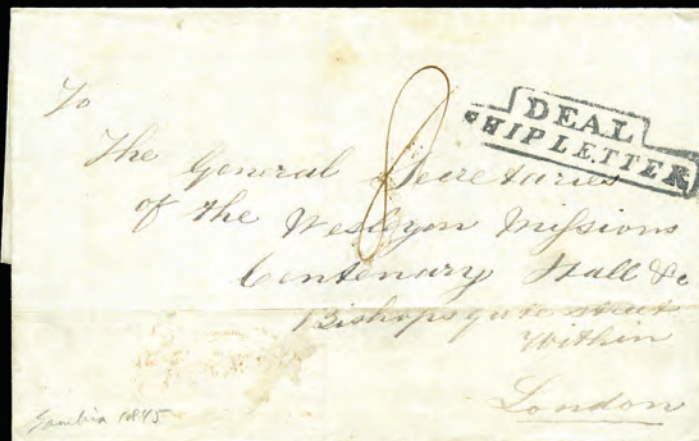 To
DEAL
SHIP LETTER
8
The General Secretaries
of the Wesleyan Missions
Centenary Hall &c
Bishopsgate street
Within
London
Gambia 1845